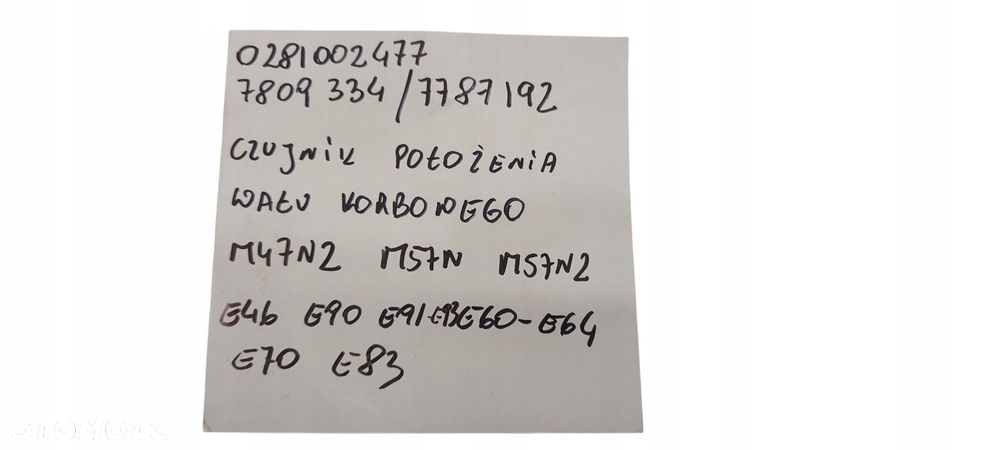 0281002477
7809 334/7787192
CZUJNIK POŁOŻENIA
WAŁU KORBOWEGO
M47N2 M57N M57N2
E46 E90 E91 E93 E60-E64
E70 E83
OTOMOTO